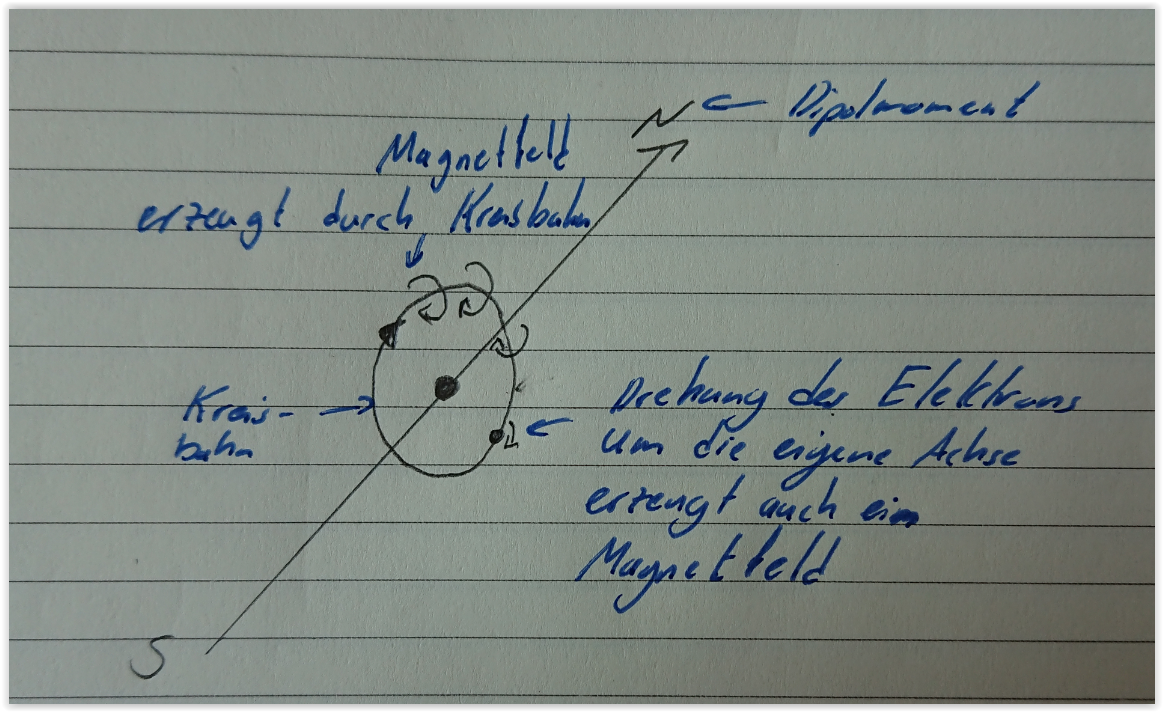 N ← Dipolmoment
Magnetfeld
erzeugt durch Kreisbahn
Kreis-
bahn
Drehung des Elektrons
um die eigene Achse
erzeugt auch ein
Magnetfeld
S